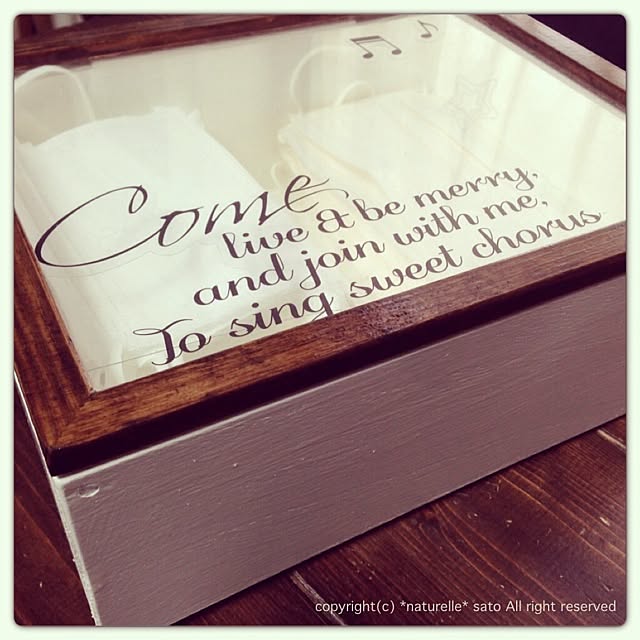 Come
live & be merry,
and join with me,
To sing sweet chorus
copyright(c) *naturelle* sato All right reserved